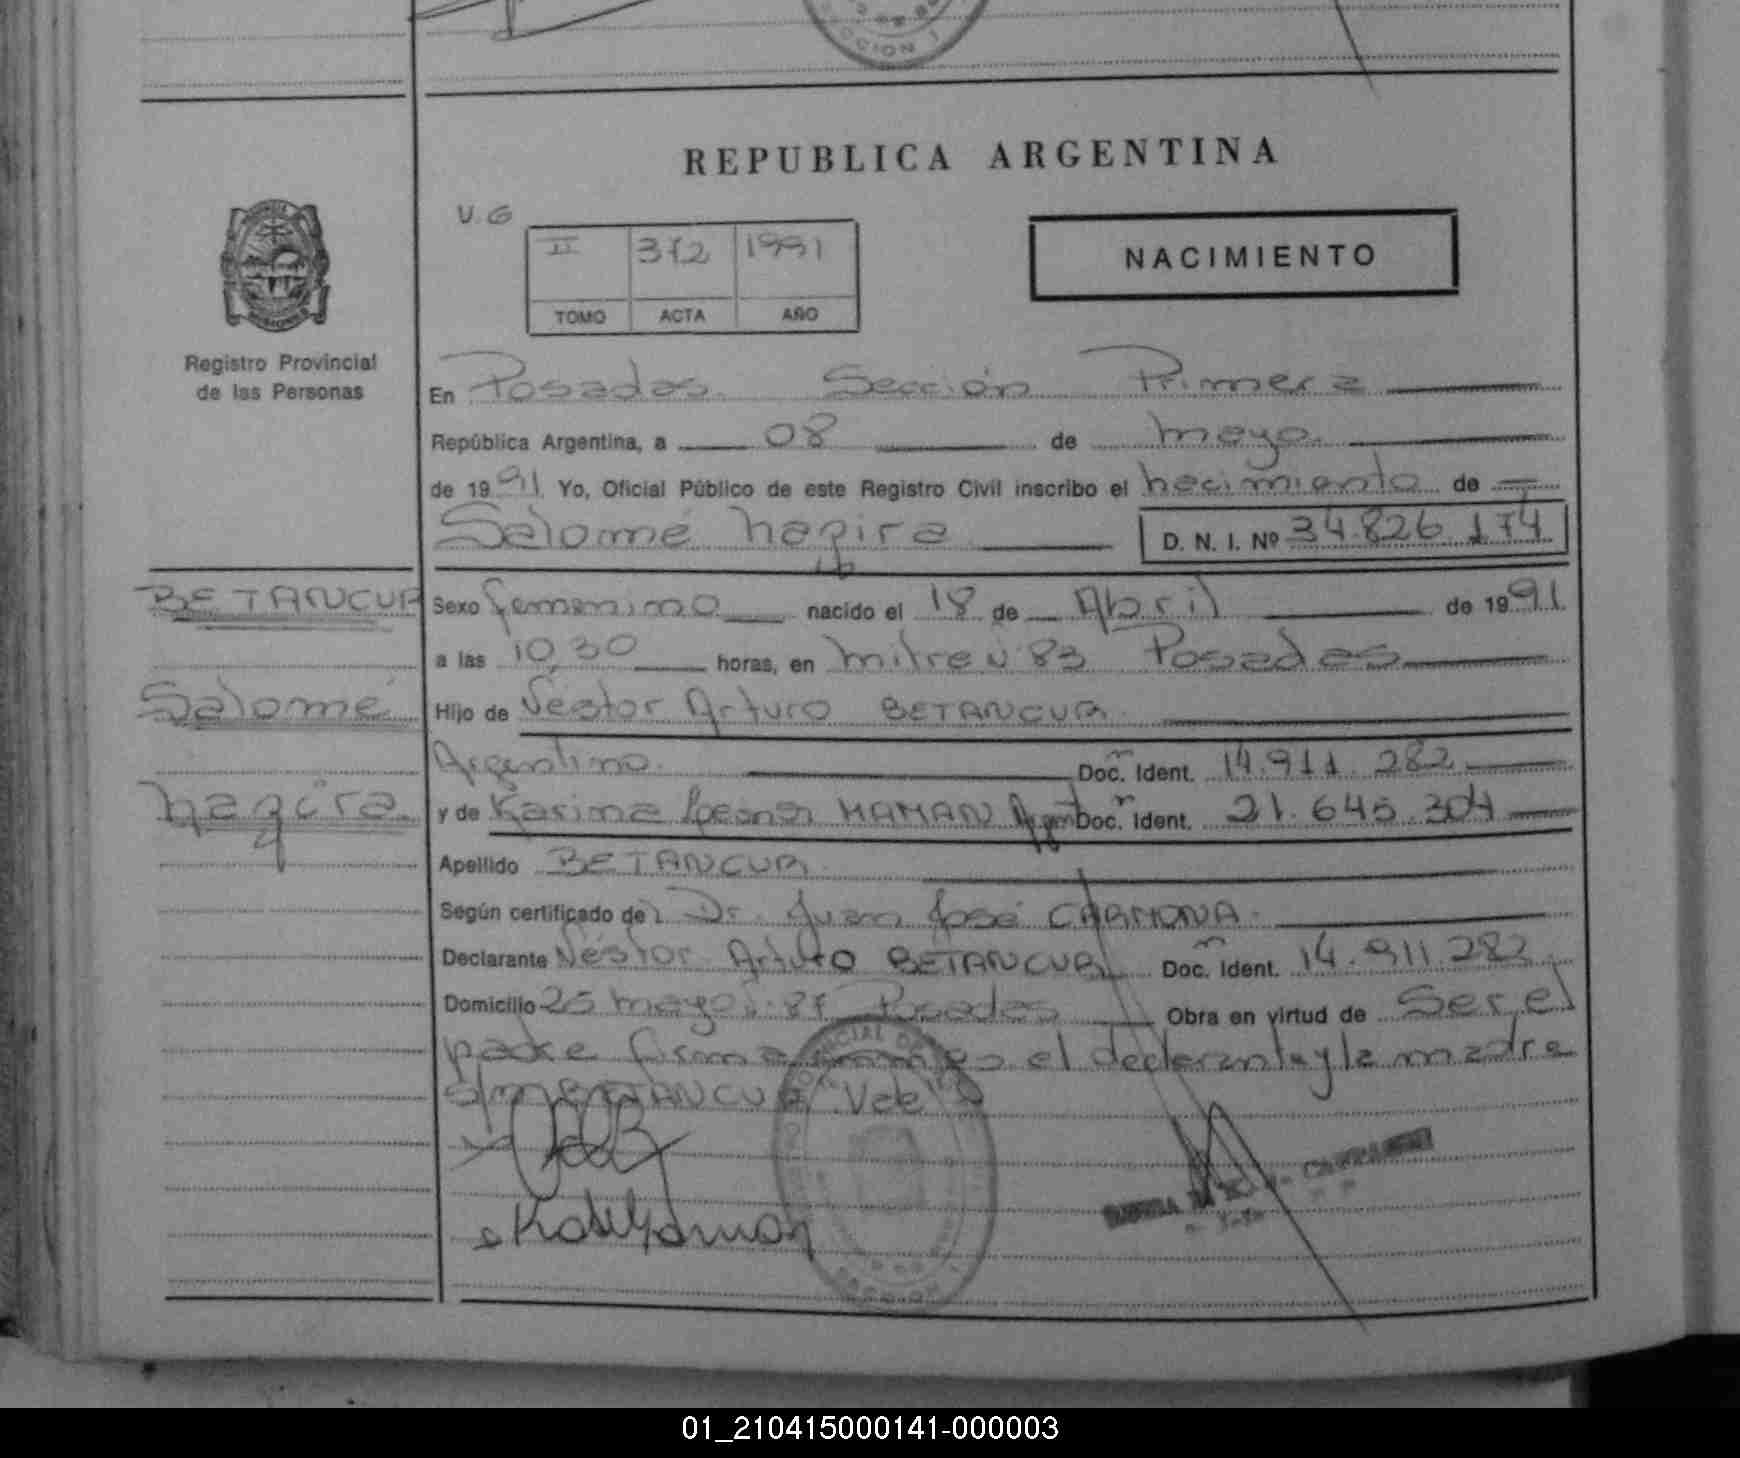 CCION 1
REPUBLICA ARGENTINA
V.G
II 372 1991
TOMO ACTA AÑO
NACIMIENTO
Registro Provincial
de las Personas
En Posadas. Sección Primera
República Argentina, a 08 de mayo
de 1991 Yo, Oficial Público de este Registro Civil inscribo el nacimiento de
Salomé naqira D. N. I. Nº 34.826.174
BETANCUR
Sexo femenino nacido el 18 de Abril de 1991
a las 10,30 horas, en mitre nº 83 Posadas
Salomé
Hijo de Néstor Arturo BETANCUR
Argentino. Doc. Ident. 14.911.282
naqira.
y de Karina MAMAN Doc. Ident. 21.645.304
Apellido BETANCUR
Según certificado de Dr. Juan José CARMONA.
Declarante Néstor Arturo BETANCUR Doc. Ident. 14.911.282
Domicilio 25 mayo nº 87 Posadas Obra en virtud de Ser el
padre firma el declarante y la madre
BETANCUR "Vale"
01_210415000141-000003